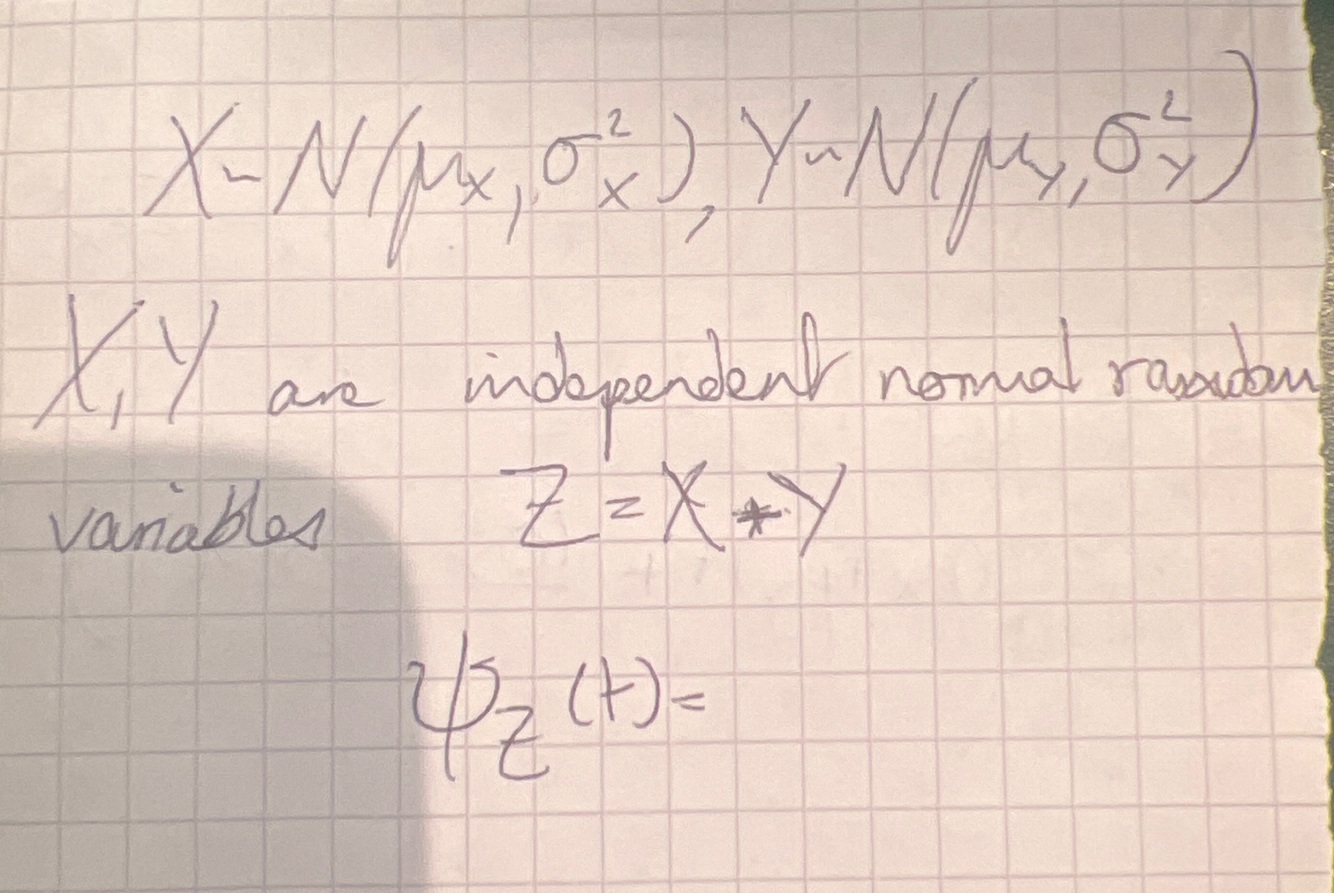 X ~ N(μ_X, σ_X^2), Y ~ N(μ_Y, σ_Y^2)
X, Y are independent normal random
variables Z = X * Y
ψ_Z (t) =